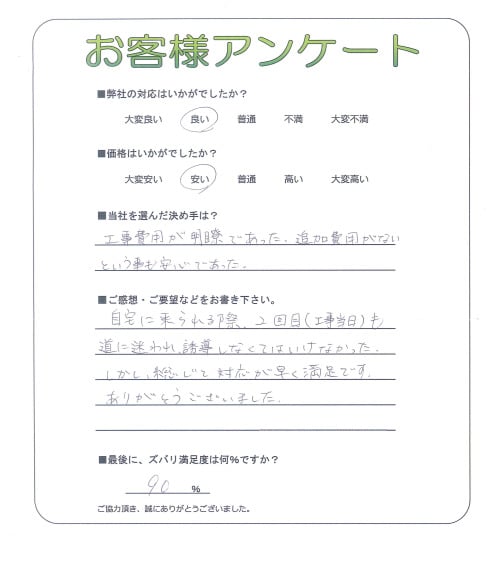 お客様アンケート
■弊社の対応はいかがでしたか?
大変良い 良い 普通 不満 大変不満
■価格はいかがでしたか?
大変安い 安い 普通 高い 大変高い
■当社を選んだ決め手は?
工事費用が明瞭であった、追加費用がない
という事も安心であった。
■ご感想・ご要望などをお書き下さい。
自宅に来られる際、2回目(工事当日)も
道に迷われ、誘導しなくてはいけなかった。
しかし、総じて対応が早く満足です。
ありがとうございました。
■最後に、ズバリ満足度は何%ですか?
90 %
ご協力頂き、誠にありがとうございました。